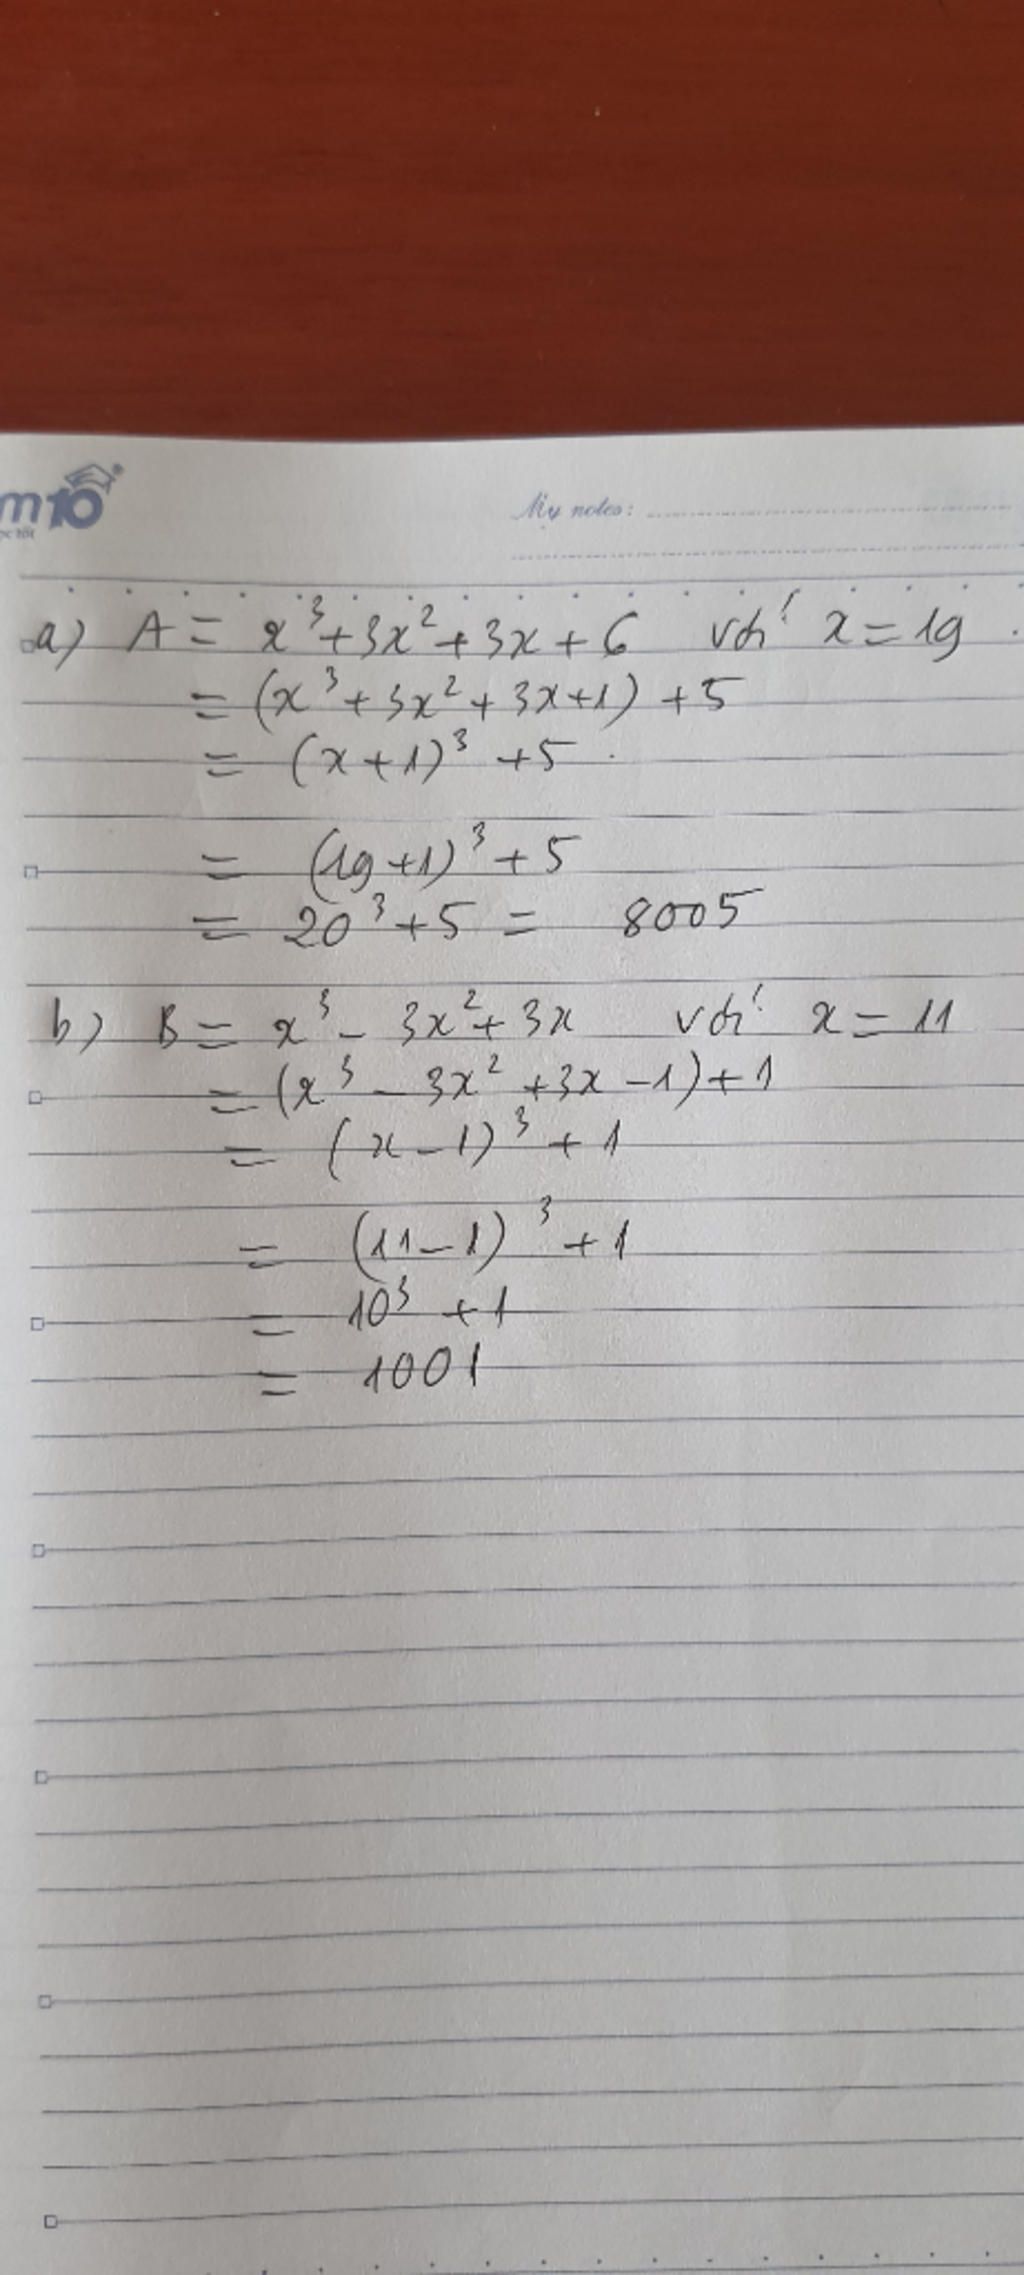 m10
My notes:
a) A = x³ + 3x² + 3x + 6 với x = 19
= (x³ + 3x² + 3x + 1) + 5
= (x + 1)³ + 5
= (19 + 1)³ + 5
= 20³ + 5 = 8005
b) B = x³ - 3x² + 3x với x = 11
= (x³ - 3x² + 3x - 1) + 1
= (x - 1)³ + 1
= (11 - 1)³ + 1
= 10³ + 1
= 1001